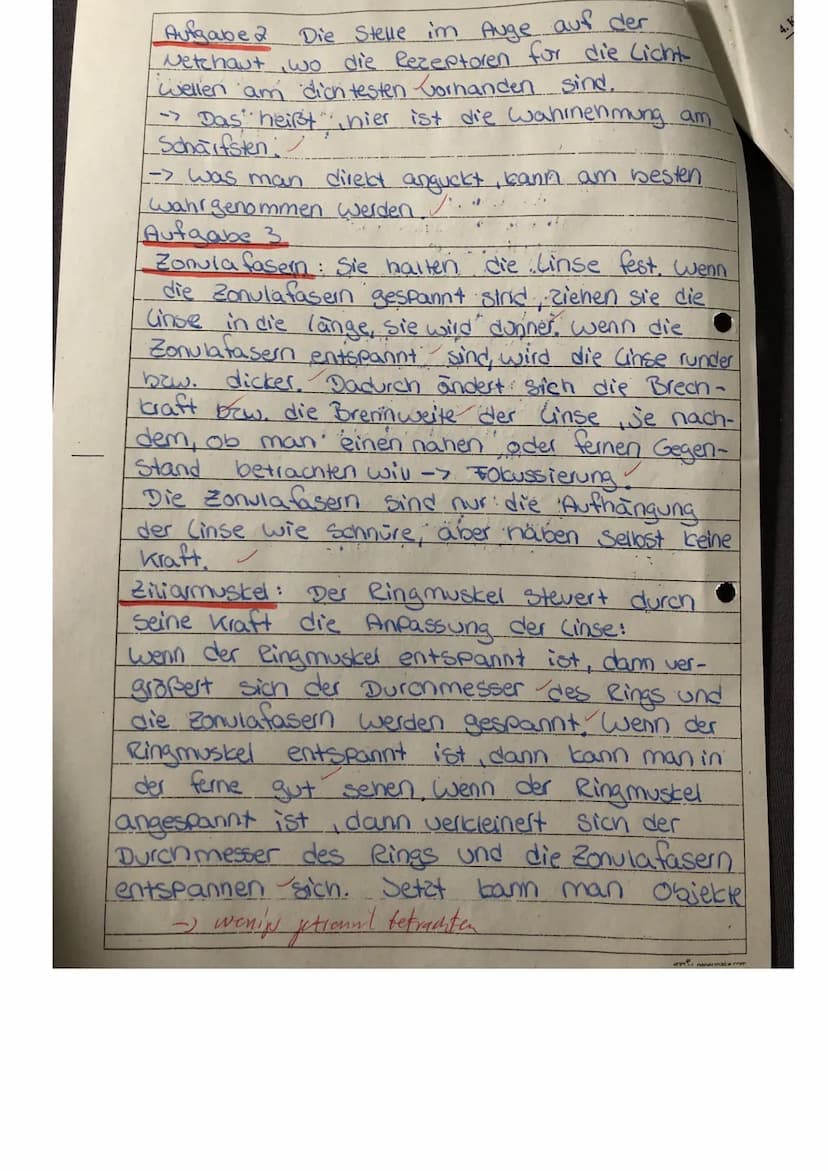 Aufgabe 2 Die Stelle im Auge auf der
Netzhaut, wo die Rezeptoren for die Licht-
wellen am dichtesten vorhanden sind.
-> Das heißt, hier ist die Wahrnehmung am
Schärfsten.
-> Was man direkt anguckt, kann am besten
wahrgenommen werden.
Aufgabe 3
Zonulafasern: Sie halten die Linse fest. Wenn
die Zonulafasern gespannt sind, ziehen sie die
Linse in die länge, sie wird dünner. Wenn die
Zonulafasern entspannt sind, wird die Linse runder
bzw. dicker. Dadurch ändert sich die Brech-
kraft bzw. die Brennweite der Linse, je nach-
dem, ob man einen nahen oder fernen Gegen-
stand betrachten will -> Fokussierung.
Die Zonulafasern sind nur die Aufhängung
der Linse wie Schnüre, aber haben selbst keine
Kraft.
Ziliarmuskel: Der Ringmuskel steuert durch
seine Kraft die Anpassung der Linse:
Wenn der Ringmuskel entspannt ist, dann ver-
größert sich der Durchmesser des Rings und
die Zonulafasern werden gespannt. Wenn der
Ringmuskel entspannt ist, dann kann man in
der ferne gut sehen. Wenn der Ringmuskel
angespannt ist, dann verkleinert sich der
Durchmesser des Rings und die Zonulafasern
entspannen sich. Jetzt kann man Objekte
-> betrachten